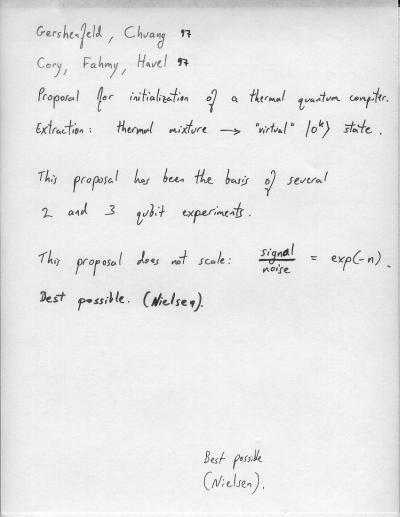 Gershenfeld, Chuang 97
Cory, Fahmy, Havel 97
Proposal for initialization of a thermal quantum computer.
Extraction: thermal mixture → "virtual" |0ᵏ⟩ state.
This proposal has been the basis of several
2 and 3 qubit experiments.
This proposal does not scale: signal/noise = exp(-n).
Best possible. (Nielsen).
Best possible
(Nielsen).